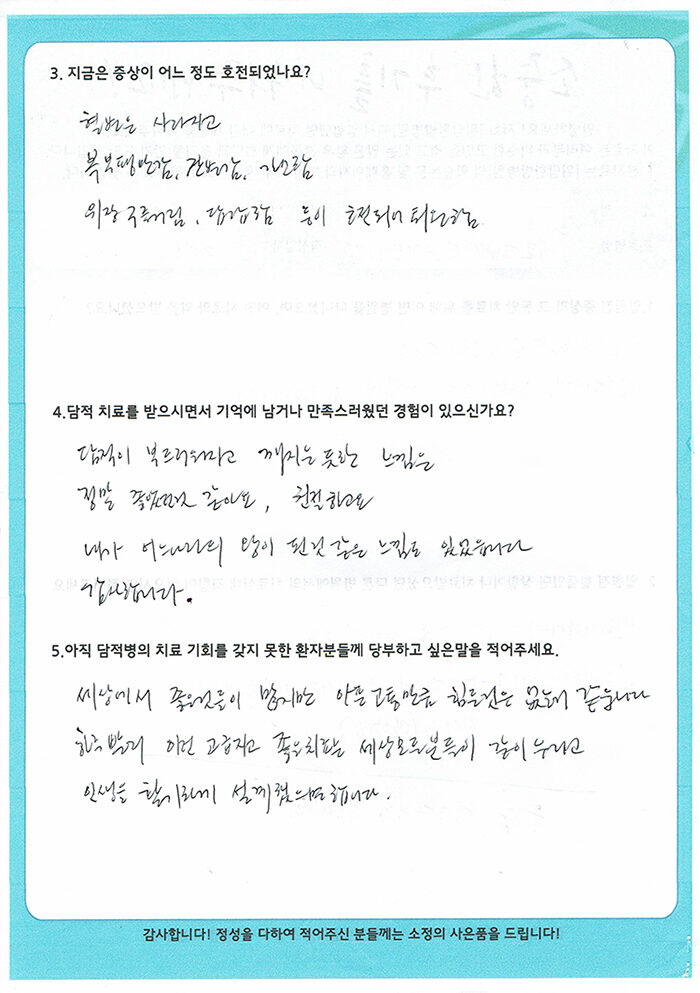 3. 지금은 증상이 어느 정도 호전되었나요?
혈변은 사라지고
복부팽만감, 잔변감,
위장 꾸륵거림, 답답함 등이 호전되어 퇴원함
4.담적 치료를 받으시면서 기억에 남거나 만족스러웠던 경험이 있으신가요?
담적이 부드러워지고 깨지는듯한 느낌은
정말 좋았던것 같아요, 친절하고요
내가 어느나라의 왕이 된것 같은 느낌도 있었습니다
감사합니다.
5.아직 담적병의 치료 기회를 갖지 못한 환자분들께 당부하고 싶은말을 적어주세요.
세상에서 좋은것들이 많지만 아픈고통만큼 힘든것은 없는거 같습니다
이런 고급지고 좋은치료는 세상모든분들이 같이누리고
인생을 활기차게 설계했으면합니다.
감사합니다! 정성을 다하여 적어주신 분들께는 소정의 사은품을 드립니다!